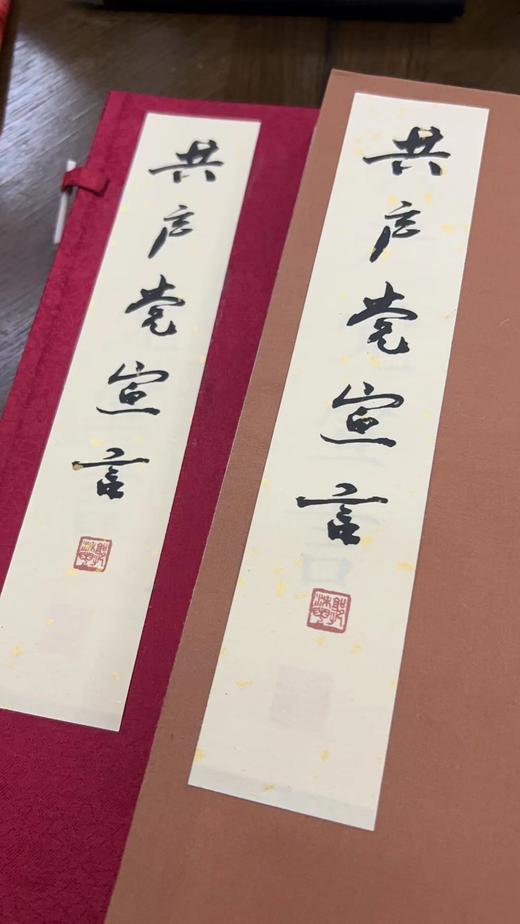 共产党宣言
共产党宣言